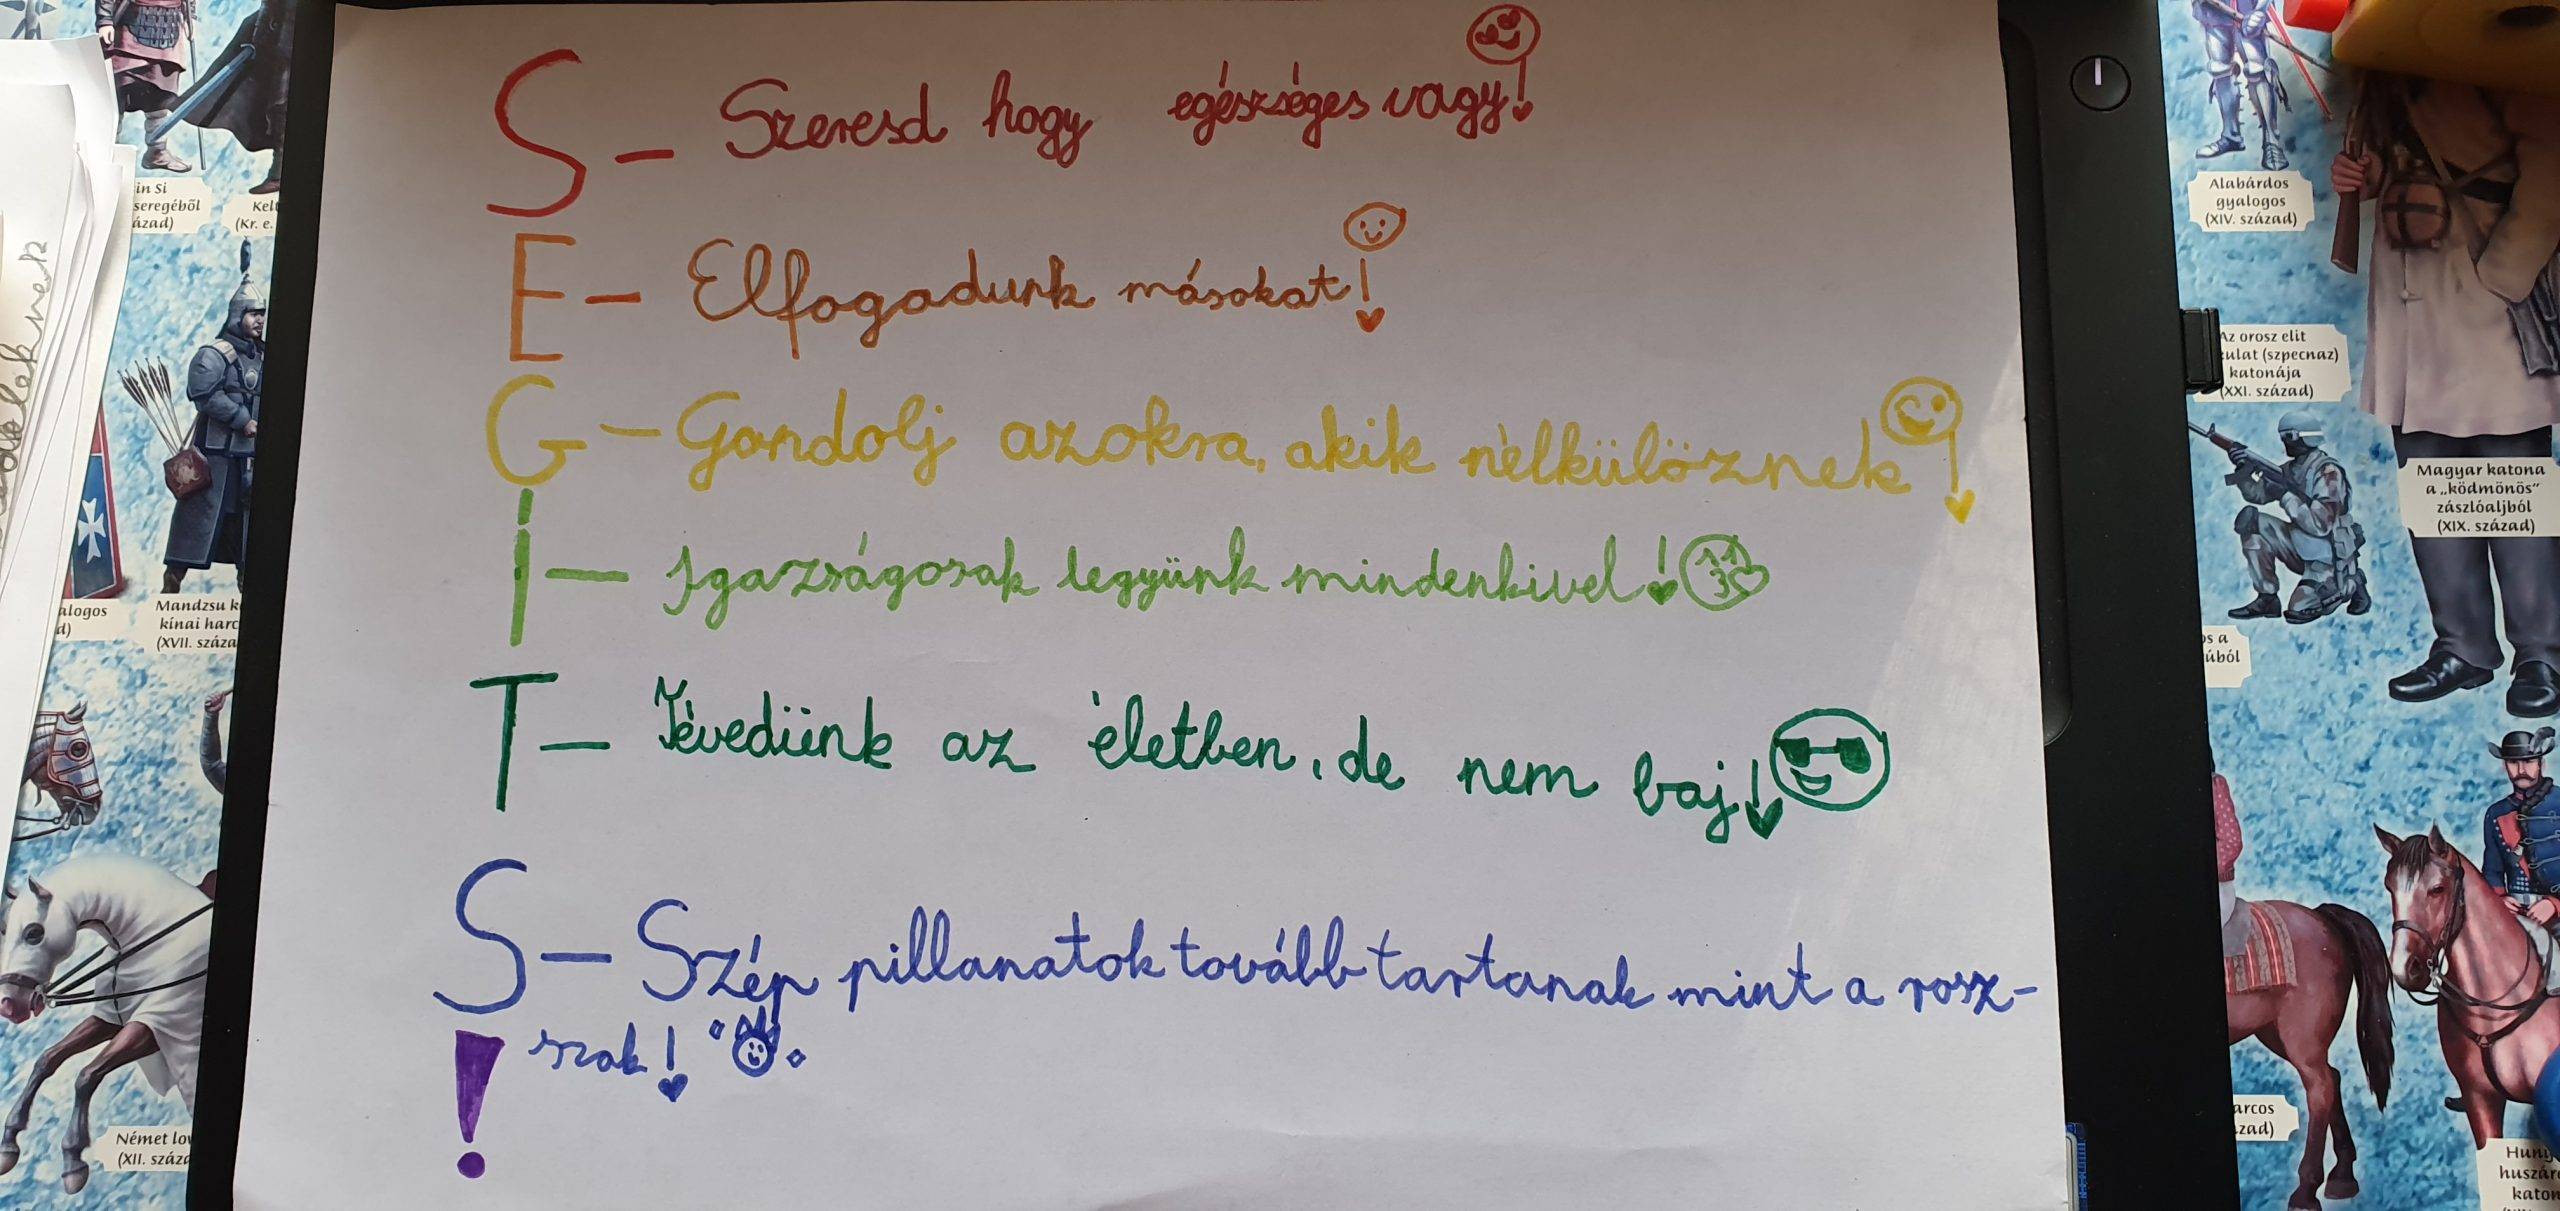 S - Szeresd hogy egészséges vagy!
E - Elfogadunk másokat!
G - Gondolj azokra, akik nélkülöznek!
I - Igazságosak legyünk mindenkivel!
T - Tévedünk az életben, de nem baj!
S - Szép pillanatok tovább tartanak mint a rosz-
! szak!
in Si
seregéből
ázad)
Kelt
(Kr. e.
alogos
d)
Mandzsu k
kínai harc
(XVII. száza
Német lov
(XII. száza
Alabárdos
gyalogos
(XIV. század)
Az orosz elit
ulat (szpecnaz)
katonája
(XXI. század)
Magyar katona
a „ködmönös"
zászlóaljból
(XIX. század)
os a
úból
arcos
zad)
Huny
huszár
katon